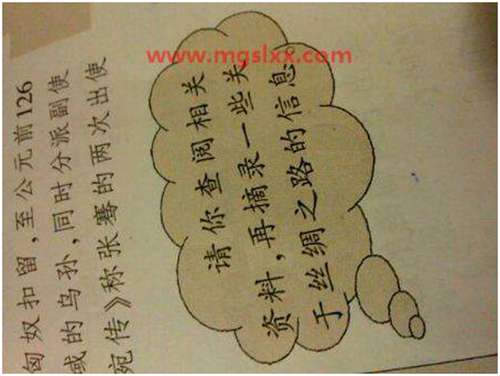 www.mgslxx.com
匈奴扣留，至公元前126
域的乌孙，同时分派副使
宛传》称张骞的两次出使
请你查阅相关
资料，再摘录一些关
于丝绸之路的信息